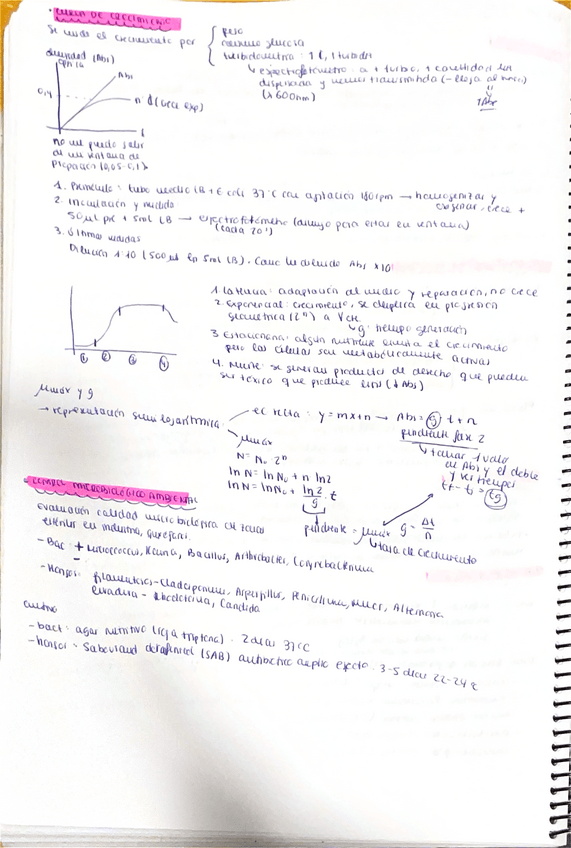 · CURVA DE CRECIMIENTO
Se mide el crecimiento por
peso
consumo glucosa
turbidometria: 1 C, 1 turbidez
↳ espectrofotómetro: a + turbio, + cantidad luz
dispersada y menor transmitida (- llega al
(λ 600nm)
↑Abs
densidad (Abs)
óptica
Abs
0,4
n d (crece exp)
t
no me puedo salir
de mi ventana de
(0,05-0,4)
1. Preinóculo: tubo medio LB + E coli 37°C con agitación 180rpm → homogenizar y
oxigenar, crece +
2. Inoculación y medida
50μl pre + 5ml LB → espectrofotómetro (diluyo para estar en ventana)
(cada 20')
3. Últimas medidas
Dilución 1:10 (500μl en 5ml LB). Como he diluido Abs x10
1. Latencia: adaptación al medio y reparación, no crece
2. Exponencial: crecimiento, se duplica en progresión
geométrica (2ⁿ) a V cte.
↳ g: tiempo generación
3. Estacionaria: algún nutriente limita el crecimiento
pero las células son metabólicamente activas
4. Muerte: se generan productos de desecho que pueden
ser tóxico que produce lisis (↓Abs)
① ② ③ ④
μmax y g
→ representación semilogarítmica
ec recta: y = mx+n → Abs = g t + n
pendiente fase 2
↳ tomar 1 valor
de Abs y el doble
y ver tiempos
t₂ - t₁ = tg
μmax
N = N₀ · 2ⁿ
ln N = ln N₀ + n ln2
ln N = ln N₀ + ln2/g · t
pendiente = μmax
↳ tasa de crecimiento
g = Δt/n
· CONTROL MICROBIOLÓGICO AMBIENTAL
evaluación calidad microbiológica de zonas
estériles en industria, quirófano.
- Bac: + Micrococcus, Kocuria, Bacillus, Arthrobacter, Corynebacterium
-
- Hongos: filamentosos - Cladosporium, Aspergillus, Penicillium, Mucor, Alternaria
levadura - Rhodotorula, Candida
Cultivo
- bact: agar nutritivo (soja + triptona). 2 días 37°C
- hongos - Sabouraud cloranfenicol (SAB) antibiótico amplio espectro. 3-5 días 22-24°C